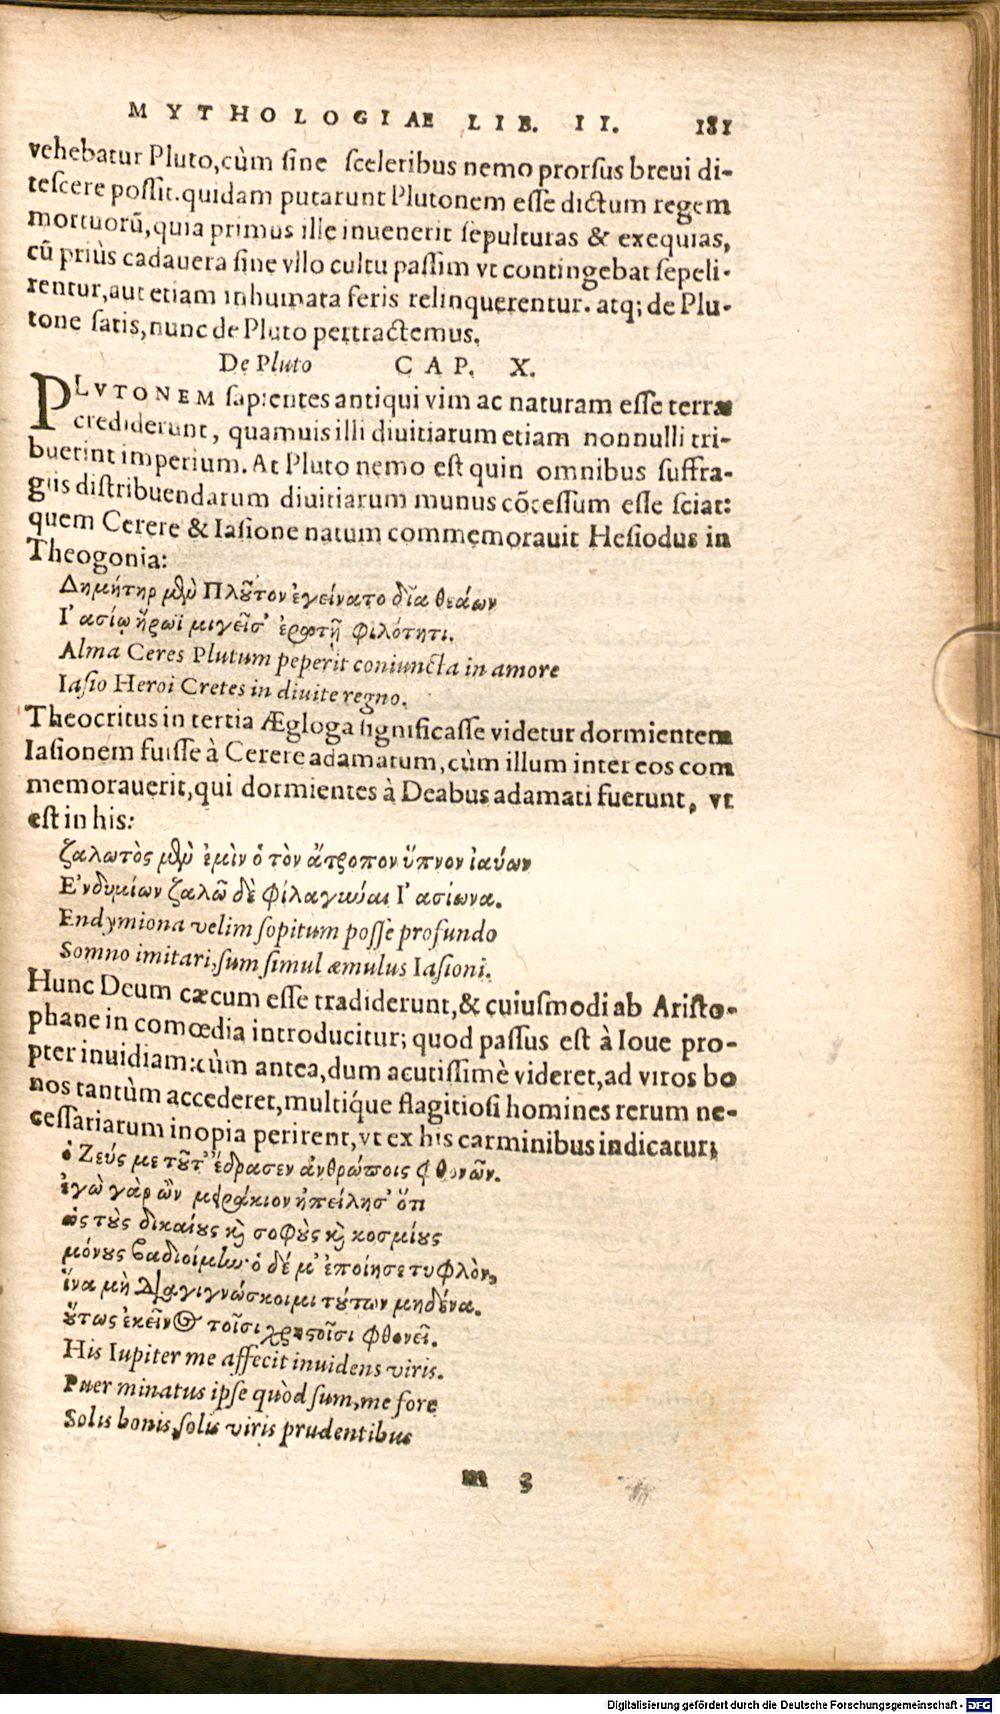 MYTHOLOGIAE LIB. II. 181
vehebatur Pluto, cùm sine sceleribus nemo prorsus breui di-
tescere possit. quidam putarunt Plutonem esse dictum regem
mortuorū, quia primus ille inuenerit sepulturas & exequias,
cū priùs cadauera sine vllo cultu passim vt contingebat sepeli-
rentur, aut etiam inhumata feris relinquerentur. atq; de Plu-
tone satis, nunc de Pluto pertractemus.
De Pluto CAP. X.
PLVTONEM sapientes antiqui vim ac naturam esse terræ
crediderunt, quamuis illi diuitiarum etiam nonnulli tri-
buerint imperium. At Pluto nemo est quin omnibus suffra-
giis distribuendarum diuitiarum munus cōcessum esse sciat:
quem Cerere & Iasione natum commemorauit Hesiodus in
Theogonia:
Δημήτηρ μὲν Πλοῦτον ἐγείνατο δῖα θεάων
Ἰασίῳ ἥρωϊ μιγεῖσ' ἐρατῇ φιλότητι.
Alma Ceres Plutum peperit coniuncta in amore
Iasio Heroi Cretes in diuite regno.
Theocritus in tertia Ægloga significasse videtur dormientem
Iasionem fuisse à Cerere adamatum, cùm illum inter eos com
memorauerit, qui dormientes à Deabus adamati fuerunt, vt
est in his:
ζαλωτὸς μὲν ἐμὶν ὁ τὸν ἄτροπον ὕπνον ἰαύων
Ἐνδυμίων ζαλῶ δὲ φίλα γύναι Ἰασίωνα.
Endymiona velim sopitum posse profundo
Somno imitari, sum simul æmulus Iasioni.
Hunc Deum cæcum esse tradiderunt, & cuiusmodi ab Aristo-
phane in comœdia introducitur; quod passus est à Ioue pro-
pter inuidiam: cùm antea, dum acutissimè videret, ad viros bo
nos tantùm accederet, multíque flagitiosi homines rerum ne-
cessariarum inopia perirent, vt ex his carminibus indicatur;
ὁ Ζεύς με τοῦτ' ἔδρασεν ἀνθρώποις φθονῶν.
ἐγὼ γὰρ ὢν μειράκιον ἠπείλησ' ὅτι
ὡς τοὺς δικαίους καὶ σοφοὺς καὶ κοσμίους
μόνους βαδιοίμην· ὁ δέ μ' ἐποίησε τυφλὸν,
ἵνα μὴ διαγιγνώσκοιμι τούτων μηδένα.
οὕτως ἐκεῖνος τοῖσι χρηστοῖσι φθονεῖ.
His Iupiter me affecit inuidens viris.
Puer minatus ipse quòd sum, me fore
Solis bonis, solis viris prudentibus
m 3
Digitalisierung gefördert durch die Deutsche Forschungsgemeinschaft - DFG